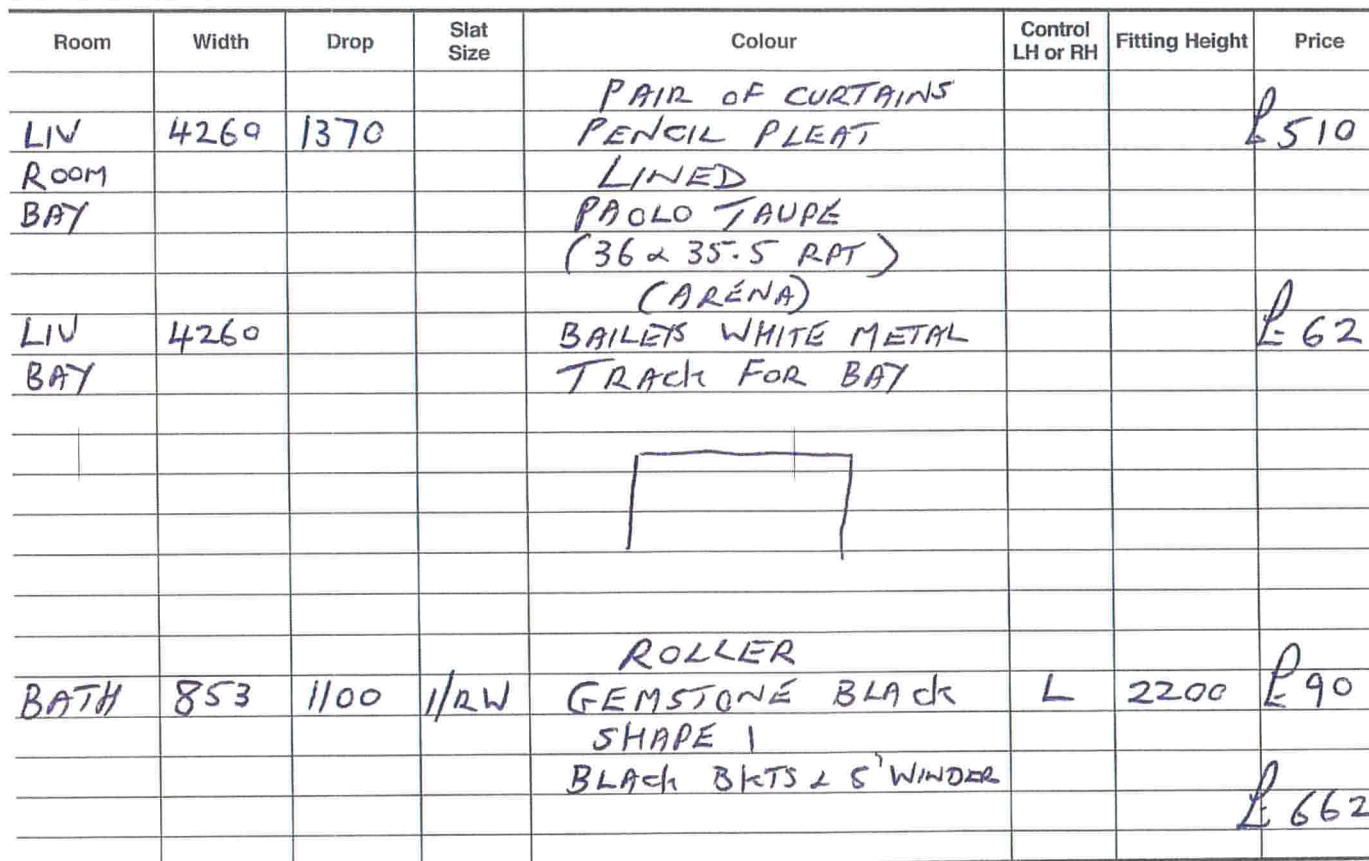 Room Width Drop Slat Size Colour Control LH or RH Fitting Height Price
PAIR OF CURTAINS
LIV 4260 1370 PENCIL PLEAT £510
ROOM LINED
BAY PAOLO TAUPE
(36 & 35.5 RPT)
(ARENA)
LIV 4260 BAILEYS WHITE METAL £62
BAY TRACK FOR BAY
ROLLER
BATH 853 1100 1/RW GEMSTONE BLACK L 2200 £90
SHAPE 1
BLACK BKTS & 5' WINDER
£662